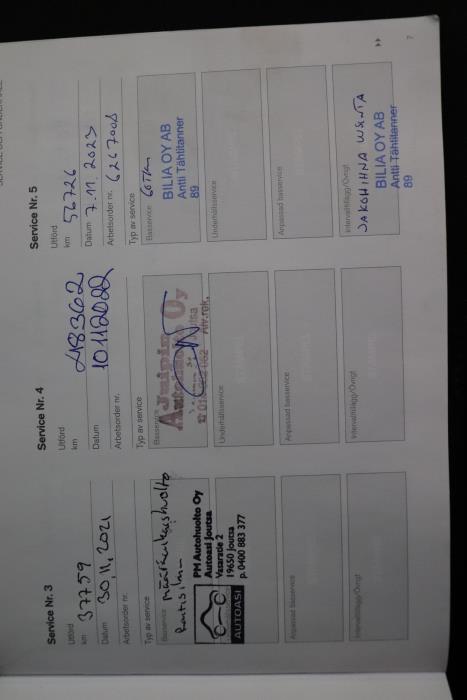 Service Nr. 3
Utförd
km 37759
Datum 30.11.2021
Arbetsorder nr.
Typ av service
Basservice
määräaikaishuolto
PM Autohuolto Oy
Autoasi Joutsa
Vasaratie 2
19650 Joutsa
p. 0400 883 377
AUTOASI
Anpassad basservice
Intervalltillägg/Övrigt
Service Nr. 4
Utförd
km 48362
Datum 10.11.2022
Arbetsorder nr.
Typ av service
Basservice
Autohuolto Oy
Underhållsservice
Anpassad basservice
Intervalltillägg/Övrigt
Service Nr. 5
Utförd
km 56726
Datum 7.11.2023
Arbetsorder nr. 6267008
Typ av service
Basservice 60Tkm
BILIA OY AB
Antti Tähtitanner
89
Underhållsservice
Anpassad basservice
Intervalltillägg/Övrigt
JAKOHIHNA
BILIA OY AB
Antti Tähtitanner
89
7